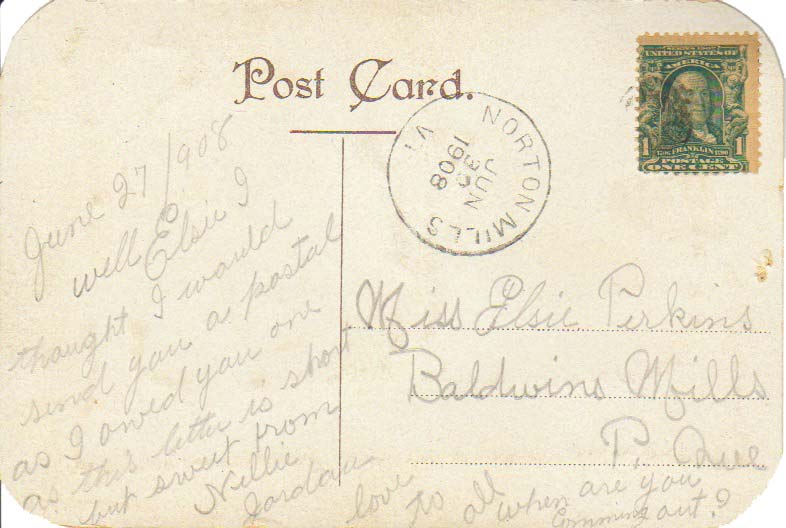 Post Card.
SERIES 1902
UNITED STATES OF
AMERICA
1706 FRANKLIN 1790
1 1
POSTAGE
ONE CENT
NORTON MILLS
JUN
30
1908
June 27/1908
well Elsie I
thought I would
send you a postal
as I owed you one
as this letter is short
but sweet from
Nellie
Jordan
love to all when are you
comming out?
Miss Elsie Perkins
Baldwins Mills
P. Que